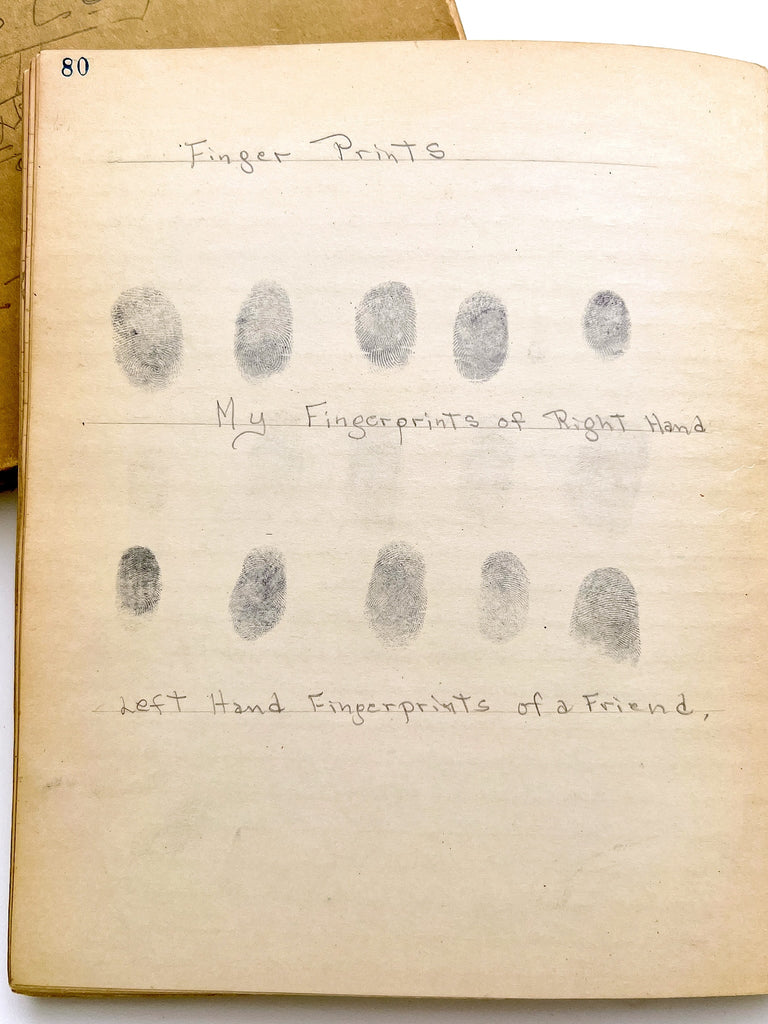 80
Finger Prints
My Fingerprints of Right Hand
Left Hand Fingerprints of a Friend,